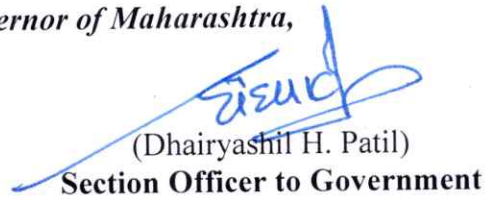 ernor of Maharashtra,
(Dhairyashil H. Patil)
Section Officer to Government